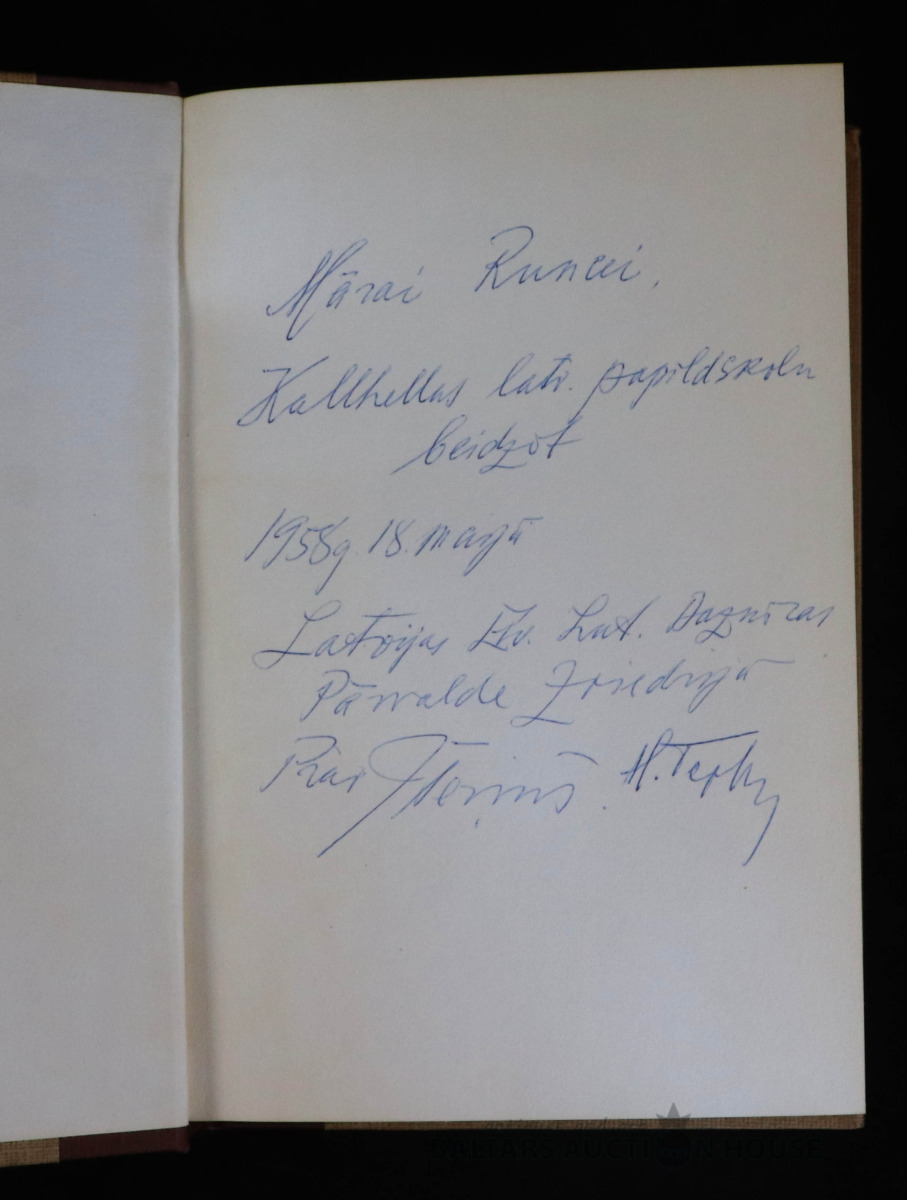 Mārai Runcei,
Kallhellas latv. papildskolu
beidzot
1958g. 18. maijā
Latvijas Ev. Lut. Baznīcas
Pārvalde Zviedrijā
BALTARS AUCTION HOUSE